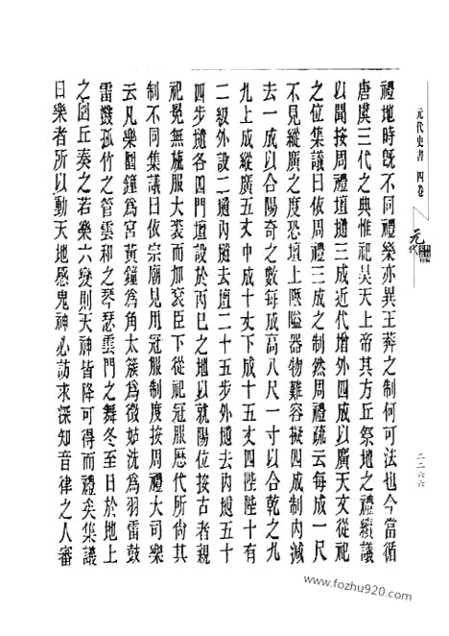 元代史書 四卷
元代
二二六六
禮地時旣不同禮樂亦異王莽之制何可法也今當循
唐虞三代之典惟祀昊天上帝其方丘祭地之禮續議
以聞按周禮壇壝三成近代增外四成以廣天文從祀
之位集議曰依周禮三成之制然周禮疏云每成一尺
不見縱廣之度恐壇上陿隘器物難容擬四成制內減
去一成以合陽奇之數每成高八尺一寸以合乾之九
九上成縱廣五丈中成十丈下成十五丈四陛陛十有
二級外設二壝內壝去壇二十五步外壝去內壝五十
四步壝各四門壇設於丙巳之地以就陽位按古者親
祀冕無旒服大裘而加衮臣下從祀冠服歷代所尙其
制不同集議曰依宗廟見用冠服制度按周禮大司樂
云凡樂圜鐘爲宮黃鐘爲角太簇爲徵姑洗爲羽雷鼓
雷鼗孤竹之管雲和之琴瑟雲門之舞冬至日於地上
之圜丘奏之若樂六變則天神皆降可得而禮矣集議
曰樂者所以動天地感鬼神必訪求深知音律之人審
www.fozhu920.com